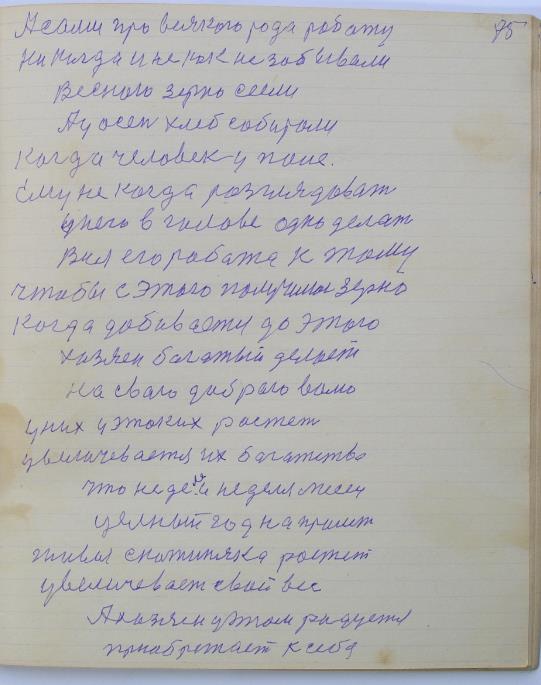 А сами про всякого рода работу 95
Никогда и не как не забывали
Весного зерно сеели
А у осен хлеб собирали
Когда человек у поле.
Ему не когда розглядоват
У него в голове одно делат
Вся его робота к тому
чтобы с этого получилос зерно
Когда добивается до этого
хазяен багатый делает
на сваго доброго
у них у таких ростет
увеличевается их багатство
что не де и неделя месец
целный год на
живая скотиняка ростет
увеличевает свой вес
А хазяен у этом радуется
приобретает к себе